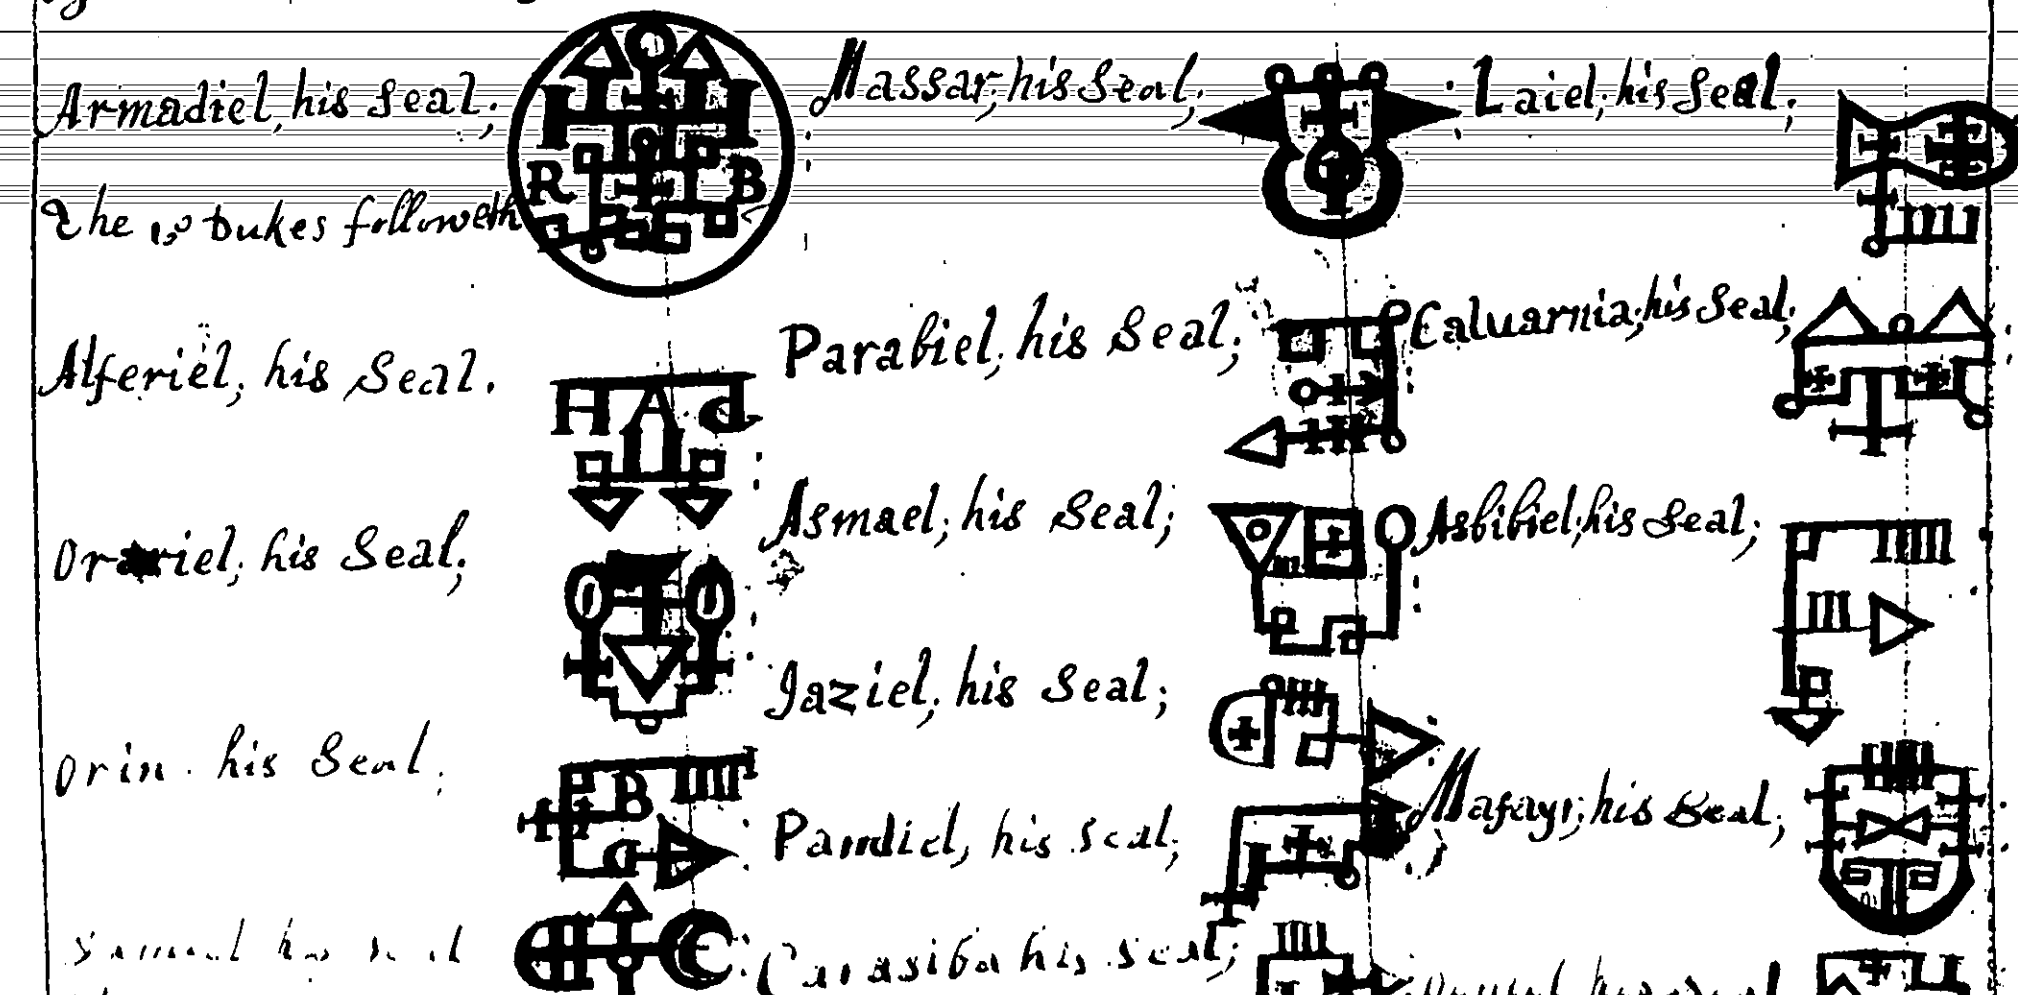 Armadiel, his Seal;
The 15 Dukes followeth
Alferiel, his Seal.
Orariel, his Seal;
Orin his Seal.
Samiel his Seal
Massar, his Seal,
Parabiel, his Seal;
Asmael, his Seal;
Jaziel, his Seal;
Pandiel, his seal;
Carasiba his seal;
Laiel, his Seal;
Caluarnia, his Seal;
Asbibiel, his Seal;
Mafayr, his Seal;